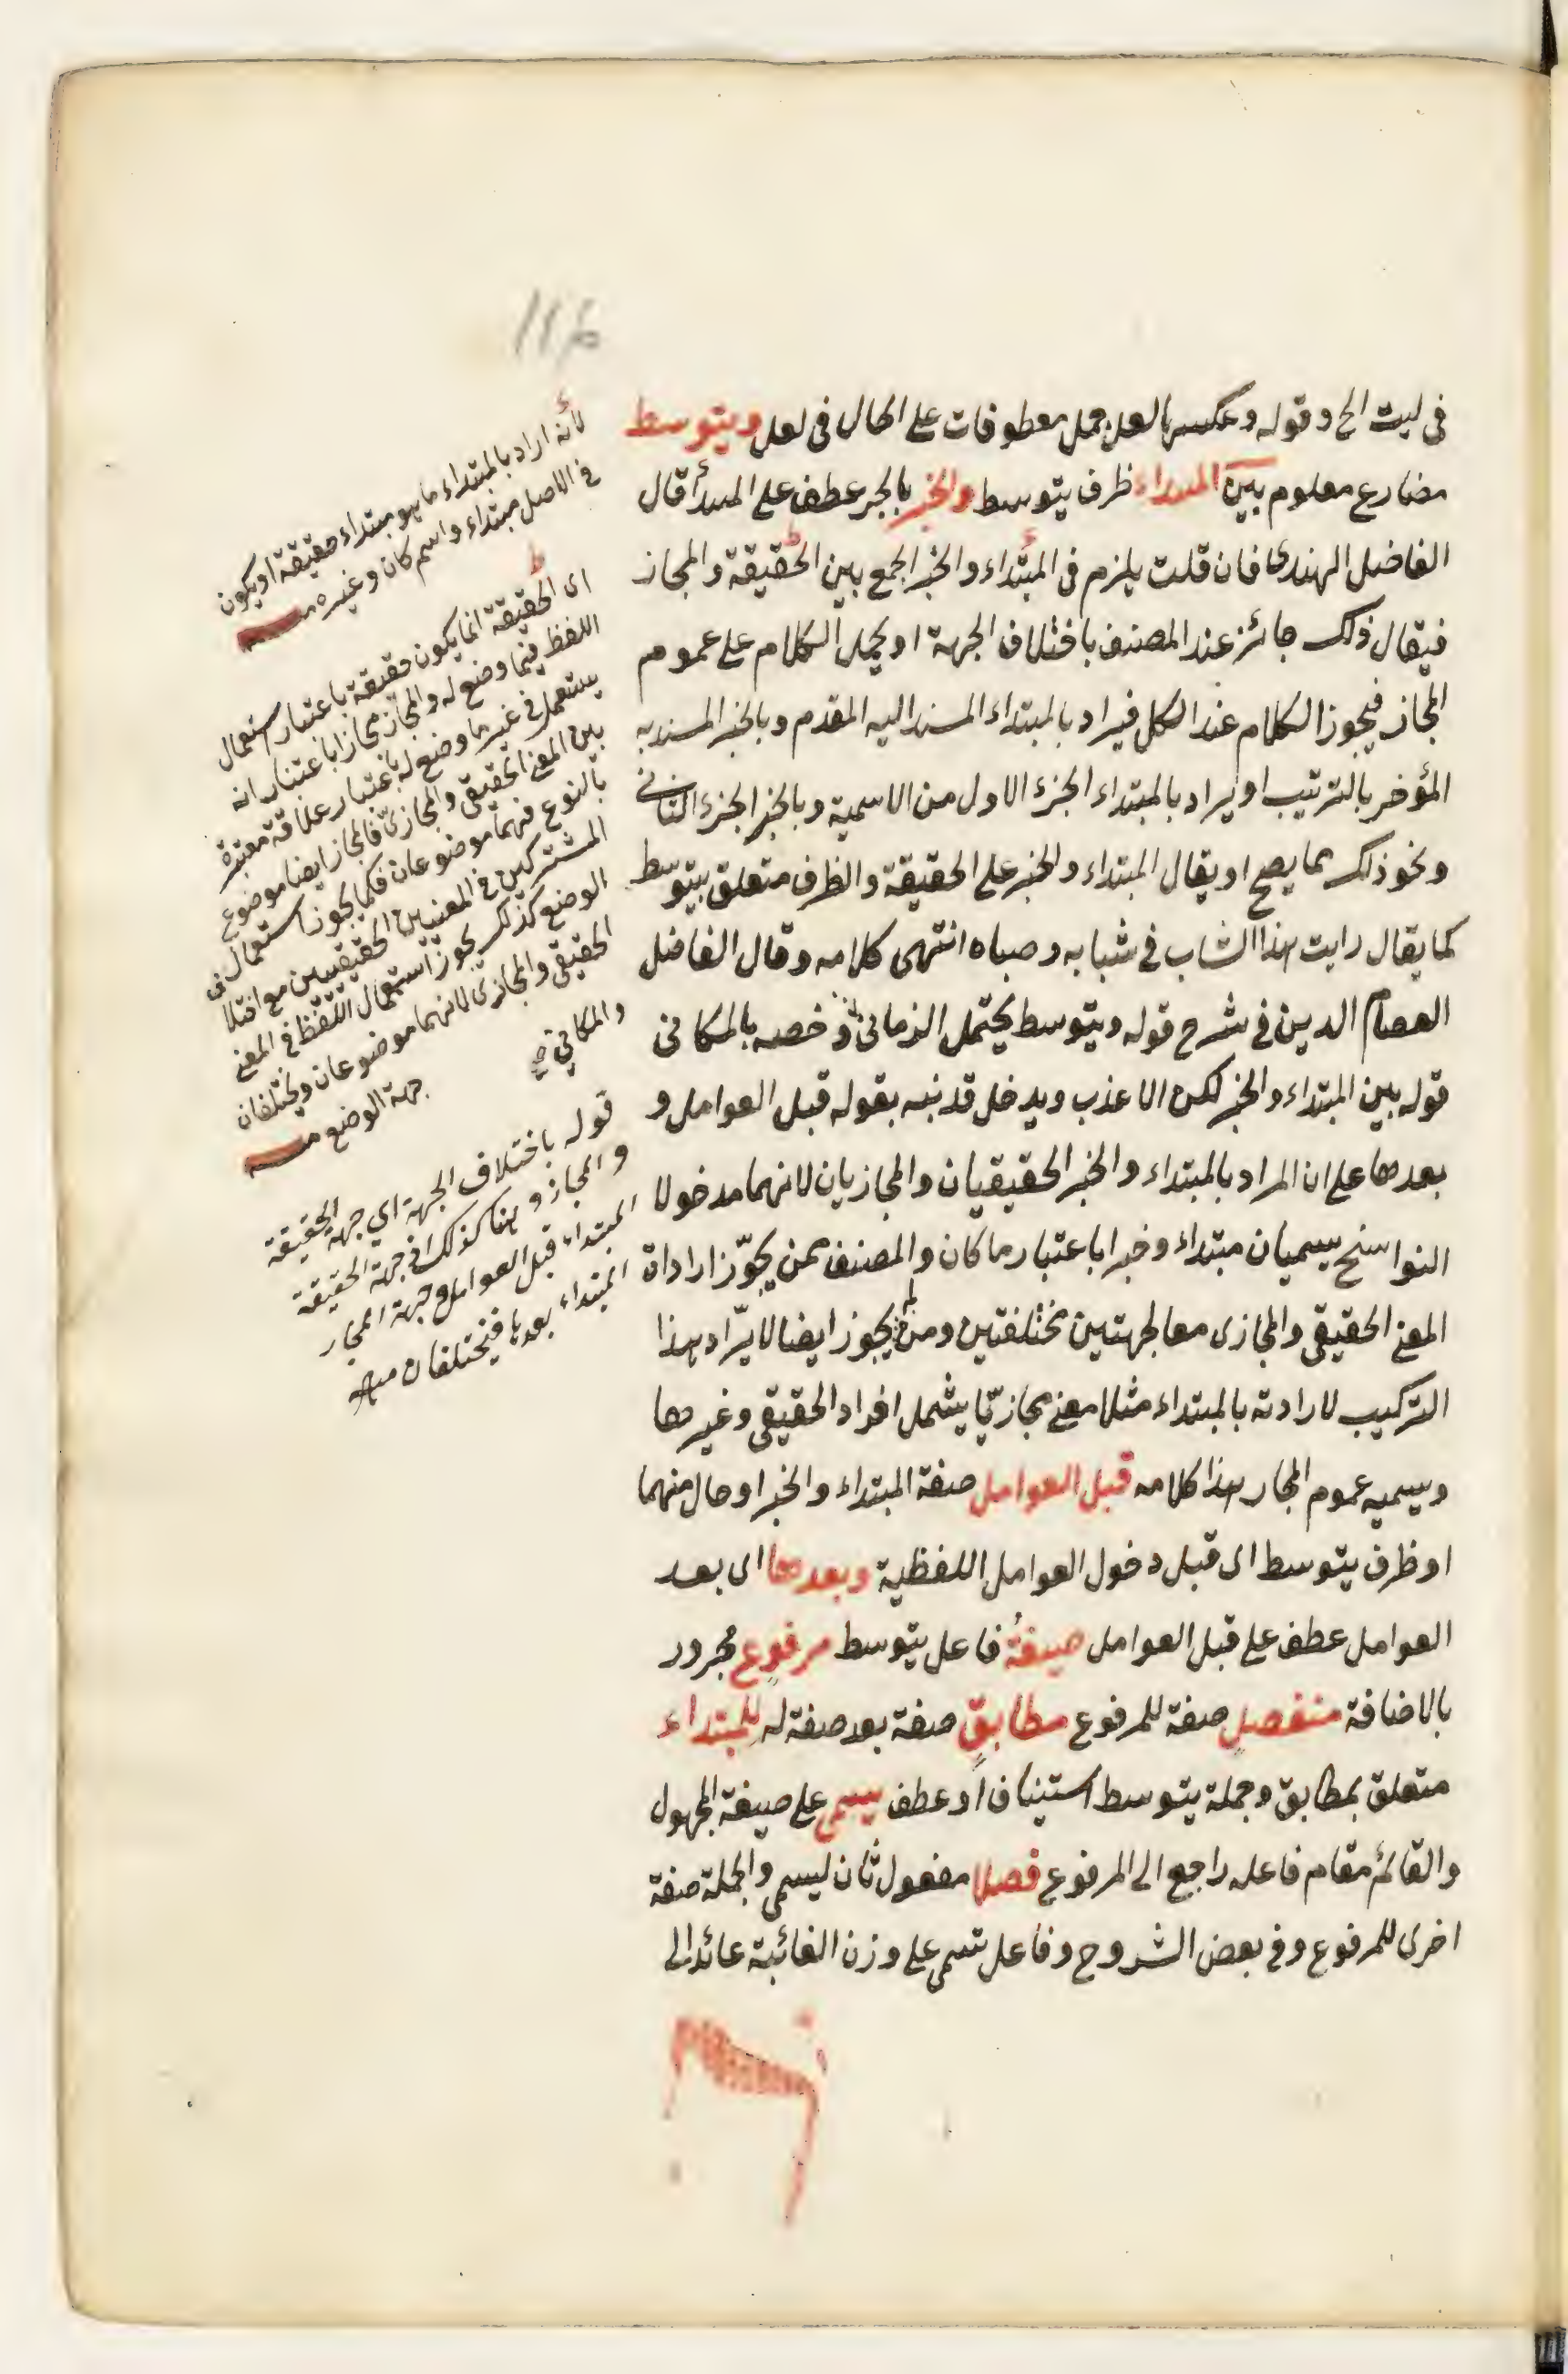 116
فى ليت الخ وقوله وعكسها لعل جمل معطوفات على الحال فى لعل ويتوسط
مضارع معلوم بين المبتداء ظرف يتوسط والخبر بالجر عطف على المبتدأ قال
الفاضل الهندى فان قلت يلزم فى المبتداء والخبر الجمع بين الحقيقة والمجاز
فيقال ذلك جائز عند المصنف باختلاف الجهة او يحمل الكلام على عموم
المجاز فيجوز الكلام عند الكل فيراد بالمبتداء المسند اليه المقدم وبالخبر المسند به
المؤخر بالترتيب او يراد بالمبتداء الجزء الاول من الاسمية وبالخبر الجزء الثانى
ونحو ذلك مما يصح او يقال المبتداء والخبر على الحقيقة والظرف متعلق بيتوسط
كما يقال رايت هذا الشاب فى شبابه وصباه انتهى كلامه وقال الفاضل
العصام الدين فى شرح قوله ويتوسط يحتمل الزمانى وخصه بالمكانى
قوله بين المبتداء والخبر لكن الاعذب ويدخل قد نبه بقوله قبل العوامل و
بعدها على ان المراد بالمبتداء والخبر الحقيقيان والمجازيان لانهما مدخولا
النواسخ يسميان مبتداء وخبرا باعتبار ما كان والمصنف ممن يجوّز اراداة
المعنى الحقيقى والمجازى معا لجهتين مختلفتين ومن لم يجوز ايضا لا يرّاد هذا
التركيب لارادته بالمبتداء مثلا معنى مجازيّا يشمل افراد الحقيقى وغيرها
ويسميه عموم المجاز هذا كلامه قبل العوامل صفة المبتداء والخبر او حال منهما
او ظرف يتوسط اى قبل دخول العوامل اللفظية وبعدها اى بعد
العوامل عطف على قبل العوامل صيغةُ فاعل يتوسط مرفوعٍ مجرور
بالاضافة منفصلٍ صفة للمرفوع مطابقٍ صفة بعد صفة له للمبتداء
متعلق بمطابق وجملة يتوسط استيناف او عطف يسمى على صيغة المجهول
والقائم مقام فاعله راجع الى المرفوع فصلا مفعول ثان ليسمى والجملة صفة
اخرى للمرفوع وفى بعض الشروح وفاعل تسمى على وزن الغائبة عائد الى
لأنه اراد بالمبتداء ما هو مبتداء حقيقة او يكون
فى الاصل مبتداء واسم كان وغيره
اى الحقيقة انما يكون حقيقة باعتبار استعمال
اللفظ فيما وضع له والمجاز مجازا باعتبار انه
يستعمل فى غير ما وضع له باعتبار علاقة معتبرة
بين المعنى الحقيقى والمجازىّ فالمجاز ايضا موضوع
بالنوع فهما موضوعان فكما يجوز استعمال
المشتركين فى المعنيين الحقيقيين مع اختلا
الوضع كذلك يجوز استعمال اللفظ فى المعنى
الحقيقى والمجازى لانهما موضوعان ويختلفان
جهة الوضع
والمكانى صح
قوله باختلاف الجهة اي جهة الحقيقة
والمجاز و هنا كذلك فى جهة الحقيقة
المبتداء قبل العوامل وجهة المجاز
المبتداء بعدها فيختلفان